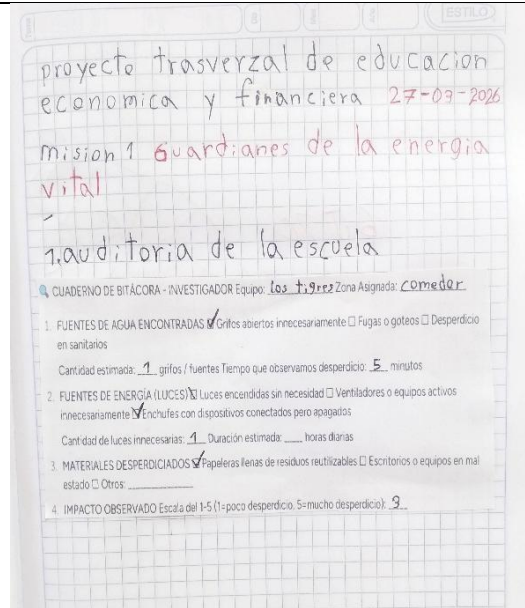 ESTILO
proyecto trasverzal de educacion
economica y financiera 27-03-2026
mision 1 Guardianes de la energia
vital
1. auditoria de la escuela
CUADERNO DE BITÁCORA - INVESTIGADOR Equipo: los tigres Zona Asignada: comedor
1. FUENTES DE AGUA ENCONTRADAS ☑ Grifos abiertos innecesariamente ☐ Fugas o goteos ☐ Desperdicio
en sanitarios
Cantidad estimada: 1 grifos / fuentes Tiempo que observamos desperdicio: 5 minutos
2. FUENTES DE ENERGÍA (LUCES) ☑ Luces encendidas sin necesidad ☐ Ventiladores o equipos activos
innecesariamente ☑ Enchufes con dispositivos conectados pero apagados
Cantidad de luces innecesarias: 1 Duración estimada: ____ horas diarias
3. MATERIALES DESPERDICIADOS ☑ Papeleras llenas de residuos reutilizables ☐ Escritorios o equipos en mal
estado ☐ Otros: ____________
4. IMPACTO OBSERVADO Escala del 1-5 (1=poco desperdicio, 5=mucho desperdicio): 3